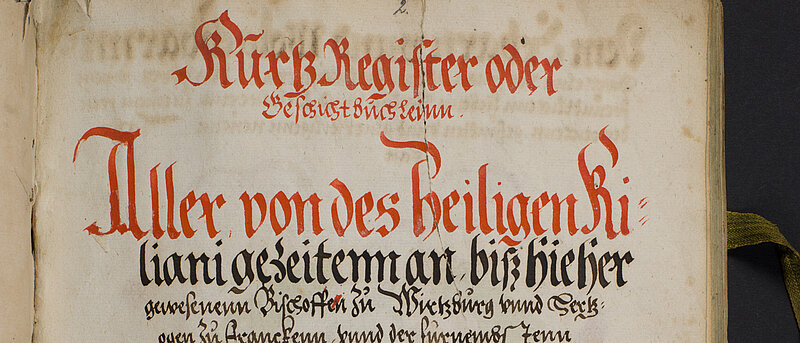 2.
Kurtz Register oder
Geschichtbuchleinn.
Aller von des heiligen Ki=
liani gezeitenn an, biß hieher
gewesenenn Bischoffen zu Wirtzburg vnnd Hertz=
ogen zu Franckenn, vnnd der furnembstenn